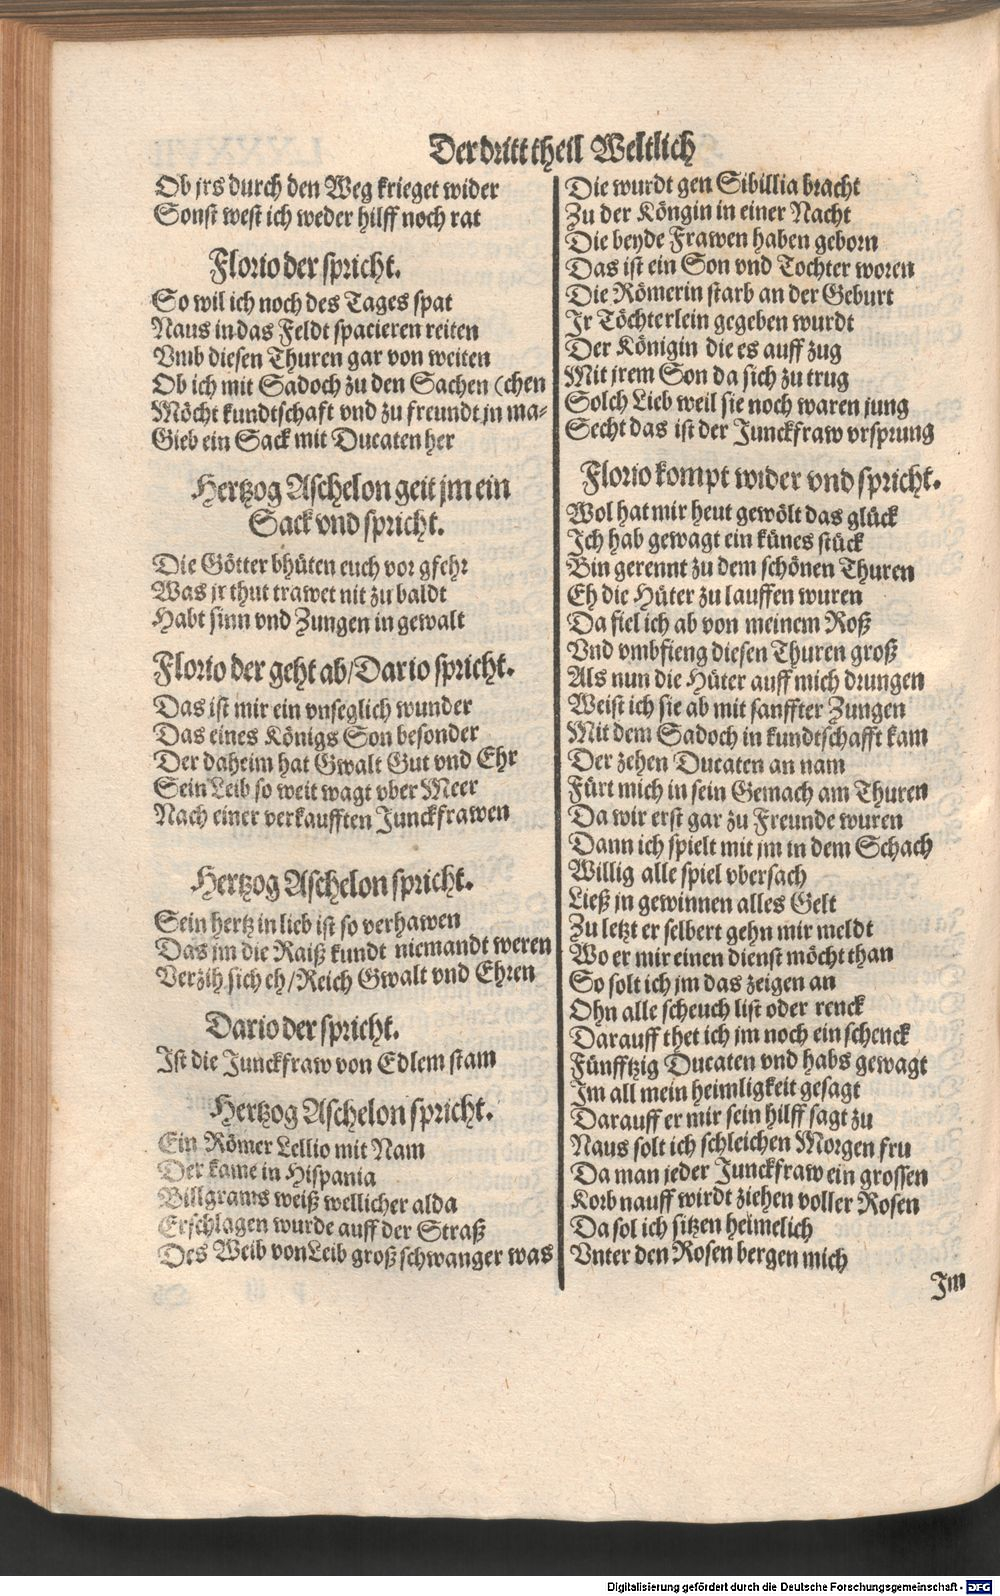 Der dritt theil Weltlich
Ob jrs durch den Weg krieget wider
Sonst west ich weder hilff noch rat
Florio der spricht.
So wil ich noch des Tages spat
Naus in das Feldt spacieren reiten
Vmb diesen Thuren gar von weiten
Ob ich mit Sadoch zu den Sachen (chen
Möcht kundtschaft vnd zu freundt jn ma-
Gieb ein Sack mit Ducaten her
Hertzog Aschelon geit jm ein
Sack vnd spricht.
Die Götter bhüten euch vor gfehr
Was jr thut trawet nit zu baldt
Habt sinn vnd Zungen in gewalt
Florio der geht ab/Dario spricht.
Das ist mir ein vnseglich wunder
Das eines Königs Son besonder
Der daheim hat Gwalt Gut vnd Ehr
Sein Leib so weit wagt vber Meer
Nach einer verkaufften Junckfrawen
Hertzog Aschelon spricht.
Sein hertz in lieb ist so verhawen
Das jm die Raiß kundt niemandt weren
Verzih sich eh/Reich Gwalt vnd Ehren
Dario der spricht.
Ist die Junckfraw von Edlem stam
Hertzog Aschelon spricht.
Ein Römer Lellio mit Nam
Der kame in Hispania
Billgrams weiß wellicher alda
Erschlagen wurde auff der Straß
Des Weib von Leib groß schwanger was
Die wurdt gen Sibillia bracht
Zu der Köngin in einer Nacht
Die beyde Frawen haben geborn
Das ist ein Son vnd Tochter woren
Die Römerin starb an der Geburt
Ir Töchterlein gegeben wurdt
Der Königin die es auff zug
Mit jrem Son da sich zu trug
Solch Lieb weil sie noch waren jung
Secht das ist der Junckfraw vrsprung
Florio kompt wider vnd spricht.
Wol hat mir heut gewölt das glück
Ich hab gewagt ein künes stück
Bin gerennt zu dem schönen Thuren
Eh die Hüter zu lauffen wuren
Da fiel ich ab von meinem Roß
Vnd vmbfieng diesen Thuren groß
Als nun die Hüter auff mich drungen
Weist ich sie ab mit sanffter Zungen
Mit dem Sadoch in kundtschafft kam
Der zehen Ducaten an nam
Fürt mich in sein Gemach am Thuren
Da wir erst gar zu Freunde wuren
Dann ich spielt mit jm in dem Schach
Willig alle spiel vbersach
Ließ jn gewinnen alles Gelt
Zu letzt er selbert gehn mir meldt
Wo er mir einen dienst möcht than
So solt ich jm das zeigen an
Ohn alle scheuch list oder renck
Darauff thet ich jm noch ein schenck
Fünfftzig Ducaten vnd habs gewagt
Im all mein heimligkeit gesagt
Darauff er mir sein hilff sagt zu
Naus solt ich schleichen Morgen fru
Da man jeder Junckfraw ein grossen
Korb nauff wirdt ziehen voller Rosen
Da sol ich sitzen heimelich
Vnter den Rosen bergen mich
Im
Digitalisierung gefördert durch die Deutsche Forschungsgemeinschaft - DFG